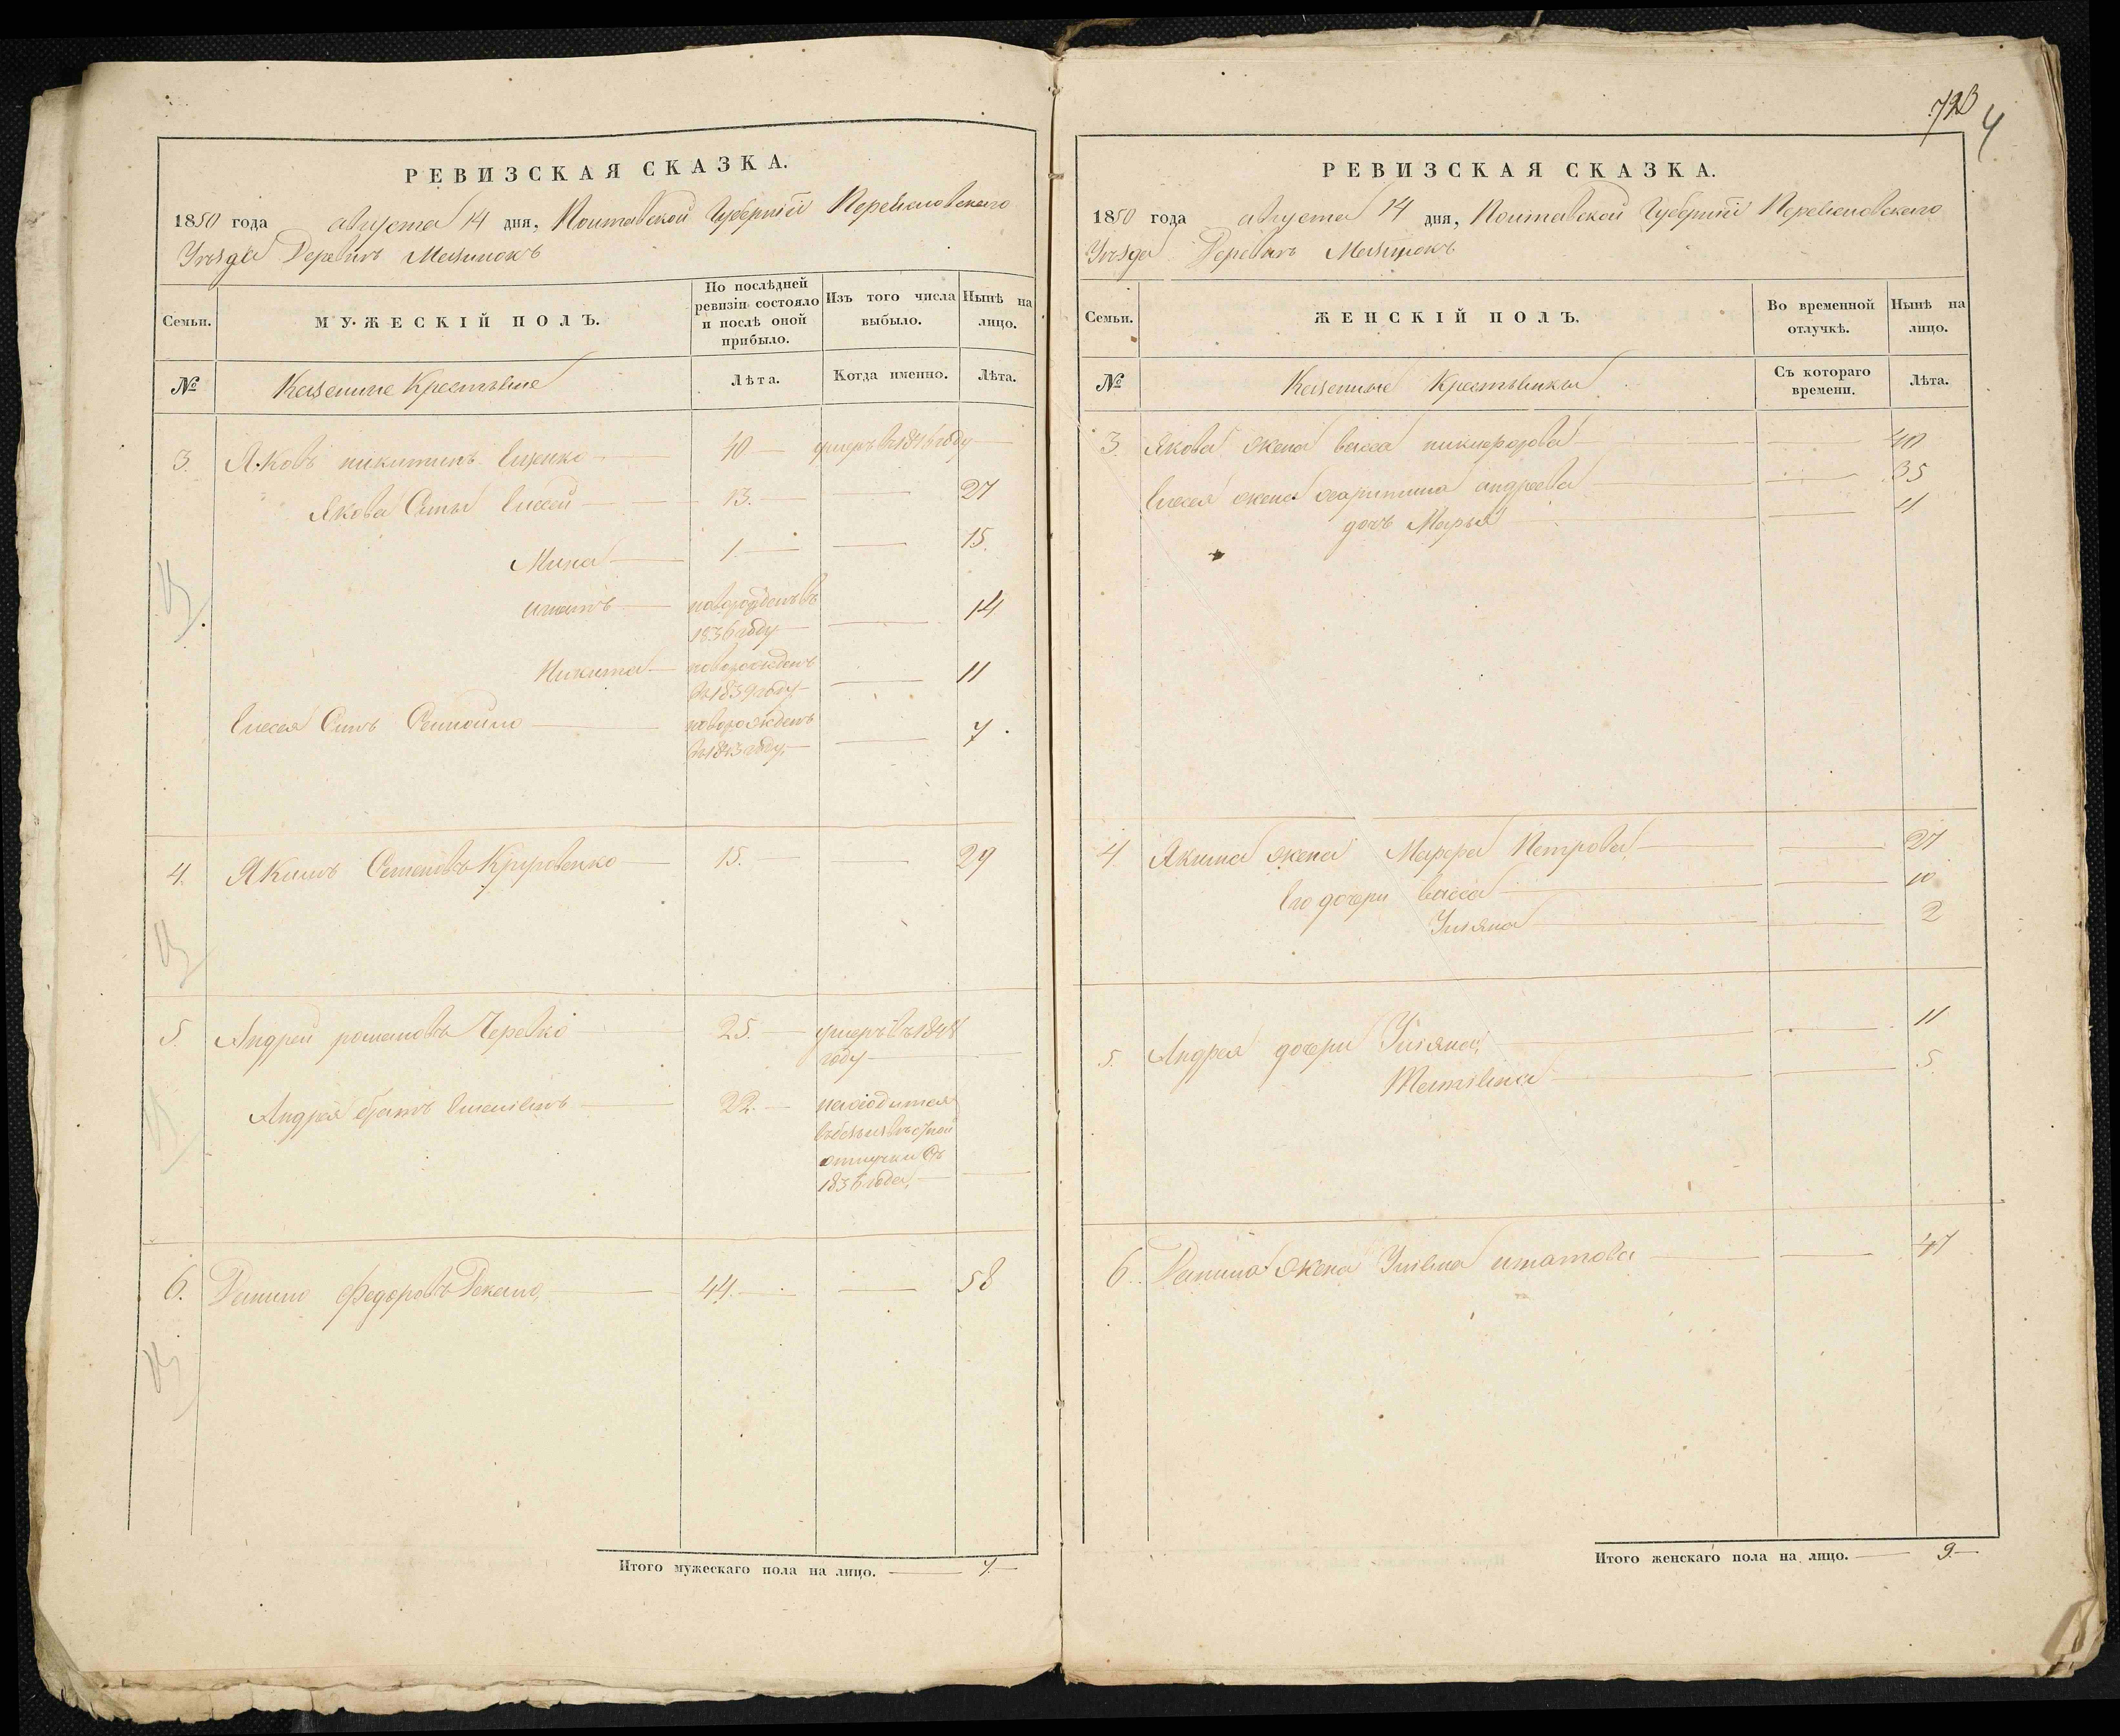 РЕВИЗСКАЯ СКАЗКА.
1850 года августа 14 дня, Полтавской Губерніи Переяславскаго
Уѣзда Деревнѣ
Семьи.
МУЖЕСКІЙ ПОЛЪ.
По послѣдней ревизіи состояло и послѣ оной прибыло.
Изъ того числа выбыло.
Нынѣ на лицо.
№
Казенные Крестьяне
Лѣта.
Когда именно.
Лѣта.
3. Яковъ никитинъ 40 умеръ въ 1846 году
Якова Сыны Елисей 13. 27
Мина 1. 15.
игнатъ новорожденъ въ 1836 году 14
Никита новорожденъ въ 1839 году 11
Елисея Сынъ новорожденъ въ 1843 году. 7.
4. Якимъ Семеновъ 15. 29
5. Андрей романовъ Черевко 25. умеръ въ 1848 году
Андрея братъ Емеліянъ 22. находится
въ безызвѣстной
отлучки Съ
1836 года,
6. Данило Федоровъ 44. 58
Итого мужескаго пола на лицо. 7.
723
4
РЕВИЗСКАЯ СКАЗКА.
1850 года августа 14 дня, Полтавской Губерніи Переяславскаго
Уѣзда Деревнѣ
Семьи.
ЖЕНСКІЙ ПОЛЪ.
Во временной отлучкѣ.
Нынѣ на лицо.
№
Казенные Крестьянки
Съ котораго времени.
Лѣта.
3. Якова жена васса никифорова 40
Елисея жена харитина андреева 35
дочь Марья 11
4. Якима жена Марфа Петрова 27
Его дочери васса 10
Ульяна 2
5. Андрея дочери Ульяна, 11
5.
6. Данила жена Ульяна игнатова 47
Итого женскаго пола на лицо. 9.